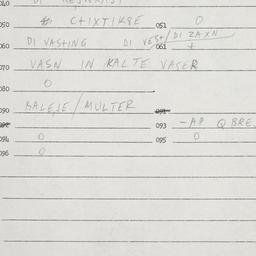 040
050 051 0
060 DI VASTING DI VEST/DI ZAXN
061 +
070 VASN IN KALTE VASER
080 0
090 MALEJE/MULTER
093 -AP Q BRE
094 0 095 0
096 0